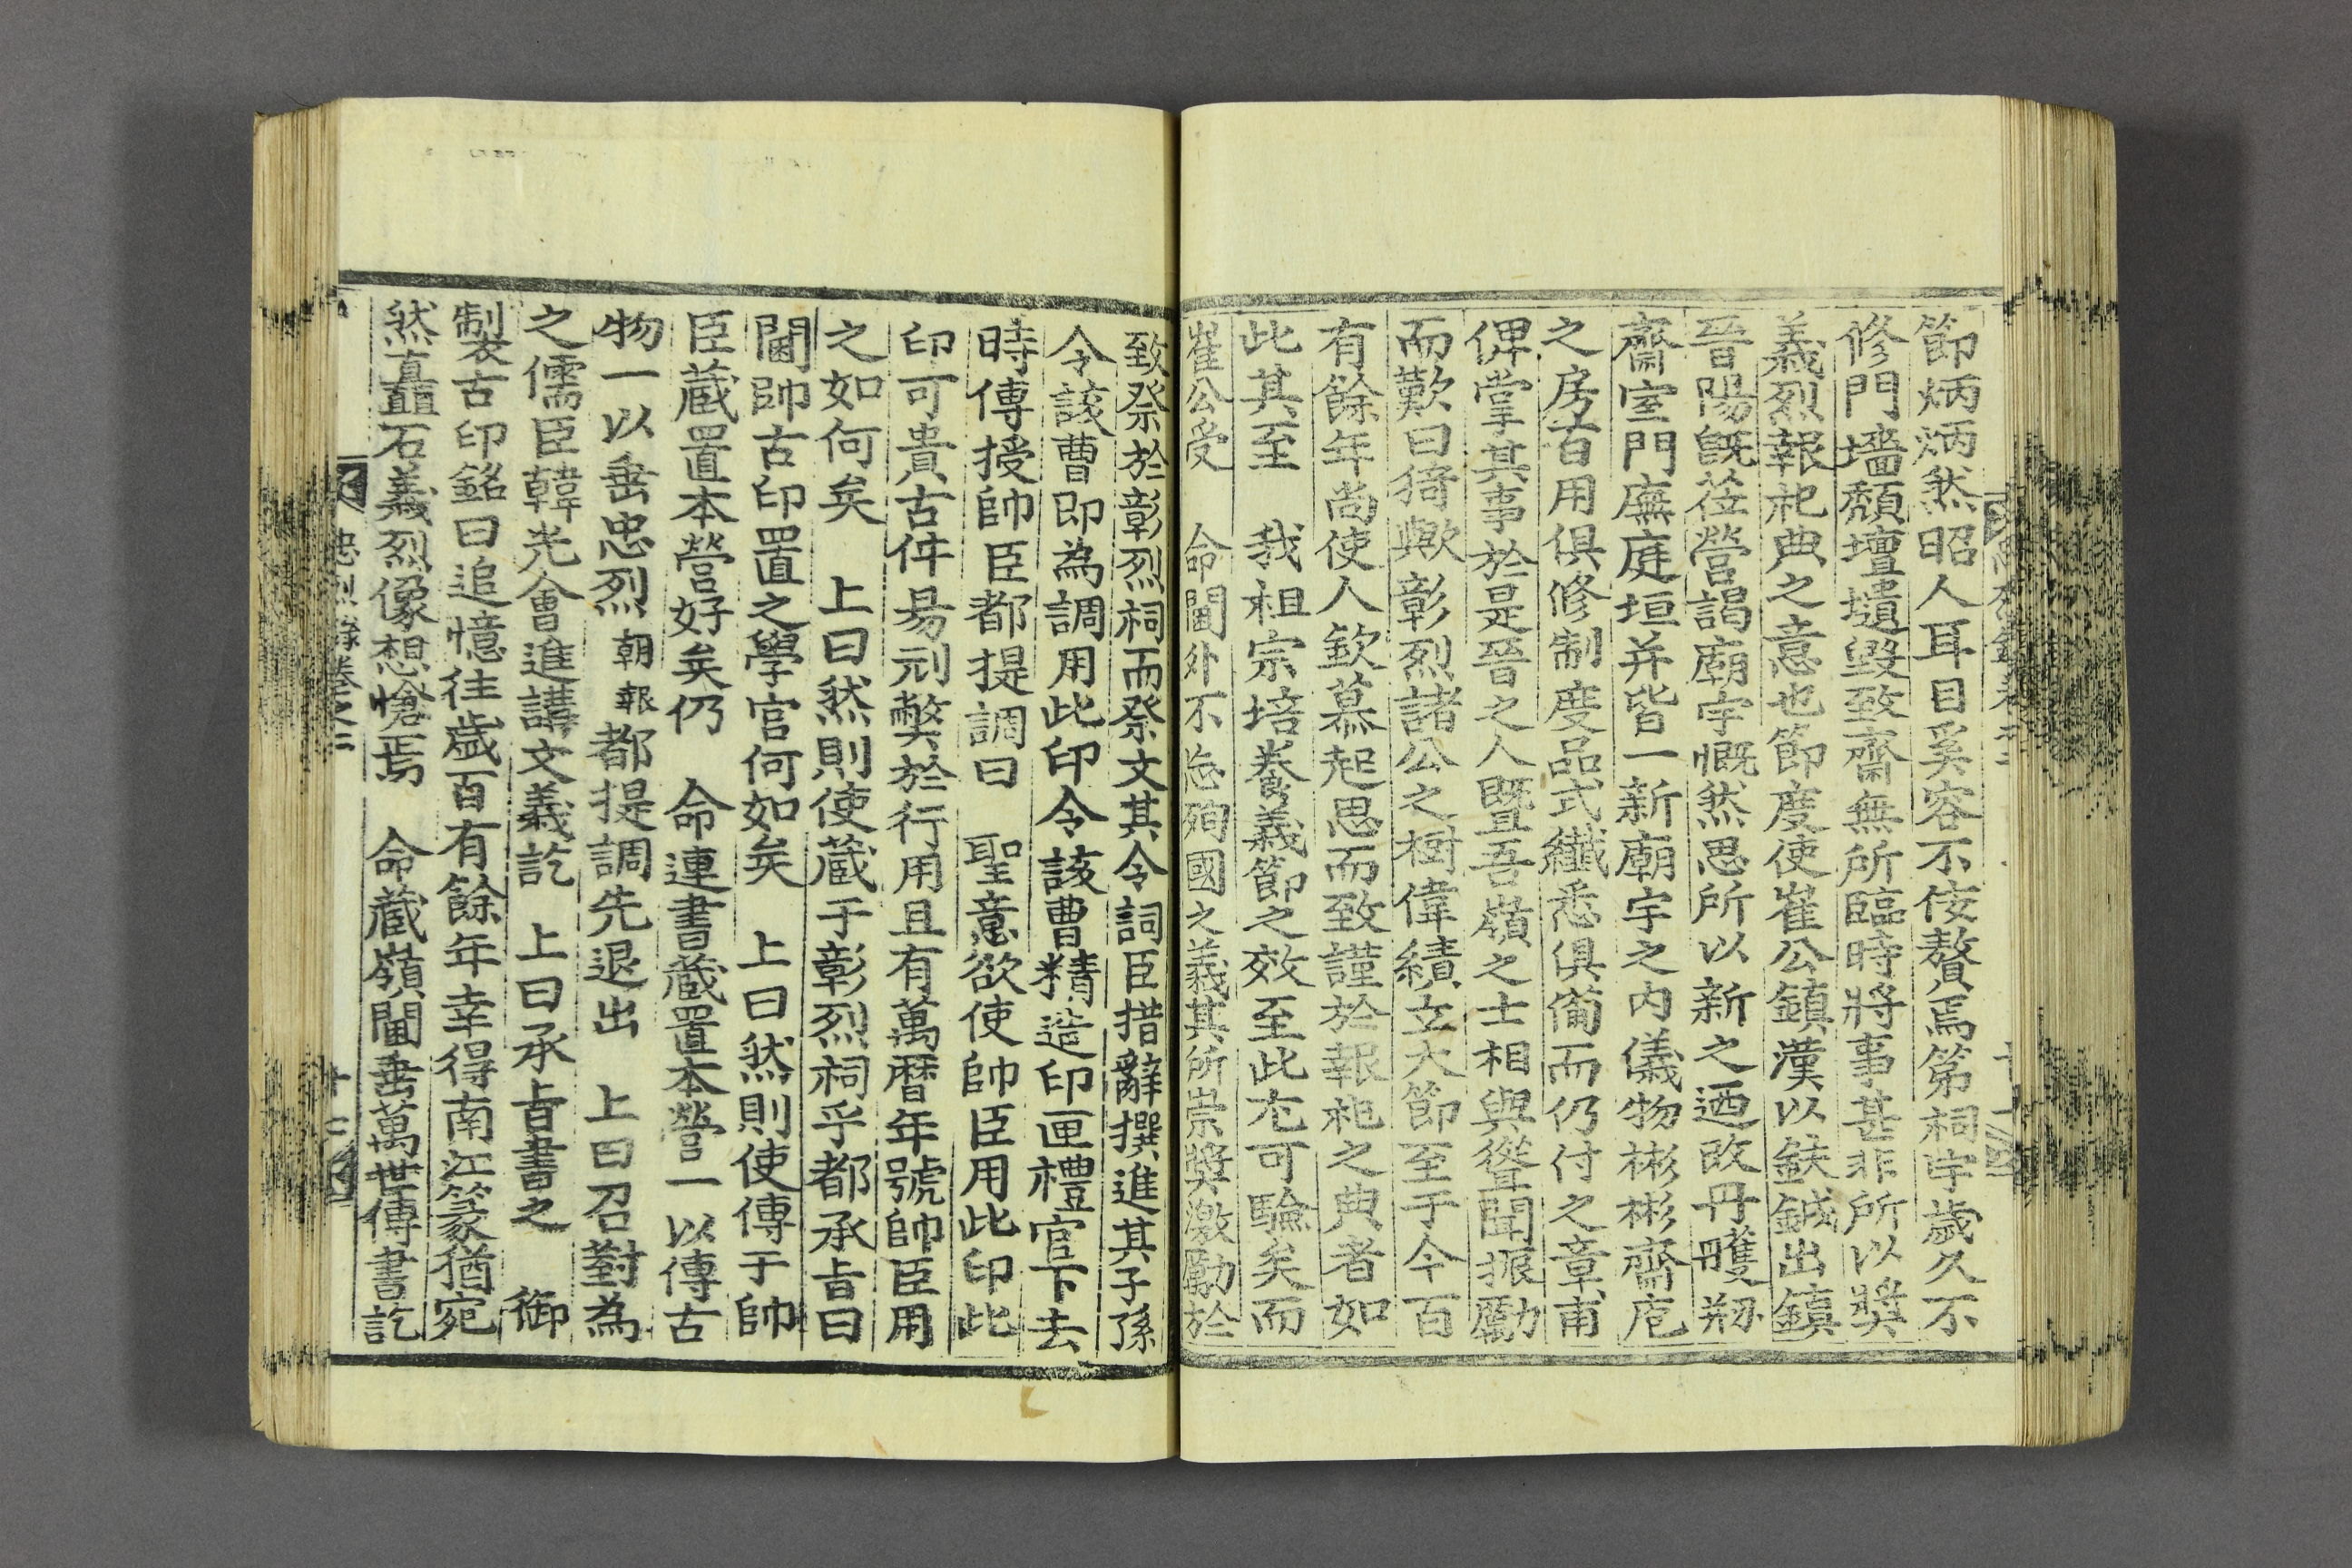 節炳炳然昭人耳目奚容不侫贅焉第祠宇歲久不
修門墻頹壇壝毀致齋無所臨時將事甚非所以奬
義烈報祀典之意也節度使崔公鎮漢以鈇鉞出鎮
晉陽旣莅營謁廟宇慨然思所以新之廼改丹雘剏
齋室門廡庭垣并皆一新廟宇之内儀物彬彬齋庖
之房百用俱修制度品式纖悉俱備而仍付之章甫
俾掌其事於是晉之人曁吾嶺之士相與聳聞振勵
而歎曰猗歟彰烈諸公之樹偉績立大節至于今百
有餘年尚使人欽慕起思而致謹於報祀之典者如
此其至 我祖宗培養義節之效至此尤可驗矣而
崔公受 命閫外不忘殉國之義其所崇奬激勵於
致祭於彰烈祠而祭文其令詞臣措辭撰進其子孫
令該曹即為調用此印令該曹精造印匣禮官下去
時傳授帥臣都提調曰 聖意欲使帥臣用此印此
印可貴古件易刓弊於行用且有萬曆年號帥臣用
之如何矣 上曰然則使藏于彰烈祠乎都承旨曰
閫帥古印置之學宮何如矣 上曰然則使傳于帥
臣藏置本營好矣仍 命連書藏置本營一以傳古
物一以垂忠烈朝報都提調先退出 上曰召對為
之儒臣韓光會進講文義訖 上曰承旨書之 御
製古印銘曰追憶往歲百有餘年幸得南江篆猶宛
然矗石義烈像想愴焉 命藏嶺閫垂萬世傳書訖
忠烈錄卷之二 十二